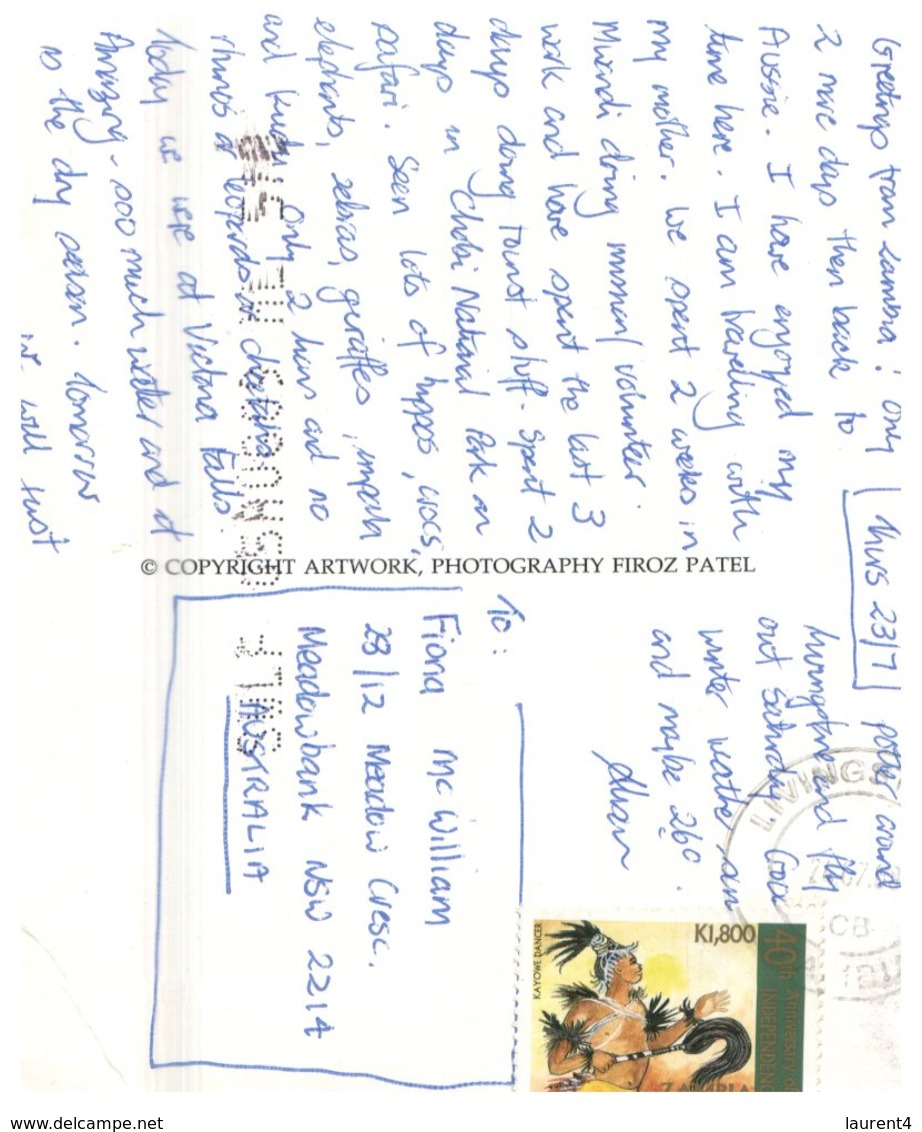 Greetings from Zambia! Only
2 more days then back to
Aussie. I have enjoyed my
time here. I am traveling with
my mother. We spent 2 weeks in
doing volunteer
work and have spent the last 3
days doing tourist stuff. Spent 2
days in Chobi National Park on
safari. Seen lots of hippos, crocs,
elephants, zebras, giraffes, impala
and kudu. Only 2 lions and no
rhinos or leopards or
Today we were at Victoria Falls
Amazing - sooo much water and it
is the dry season. Tomorrow
we will just
Thurs 23/7
potter around
Livingstone and fly
out Saturday. Good
winter weather, sun
and maybe 26°C.
To:
Fiona McWilliam
28/12 Meadow Cresc.
Meadowbank NSW 2214
AUSTRALIA
© COPYRIGHT ARTWORK, PHOTOGRAPHY FIROZ PATEL
LIVINGS
CB
K1,800
KAYOWE DANCER
40th Anniversary of
INDEPENDEN
ZAMBIA
www.delcampe.net
laurent4